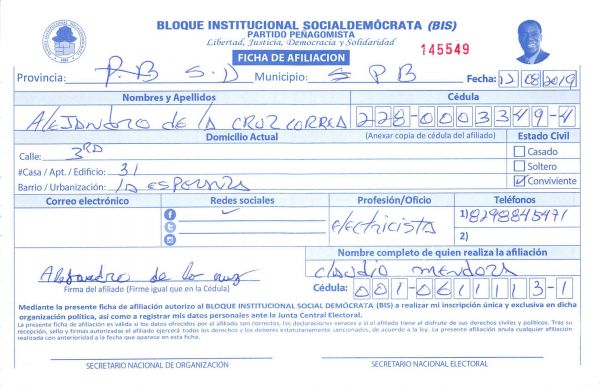 BLOQUE INSTITUCIONAL SOCIALDEMÓCRATA (BIS)
PARTIDO PEÑAGOMISTA
Libertad, Justicia, Democracia y Solidaridad
FICHA DE AFILIACION
145549
Provincia: P.B S.D Municipio: S P B Fecha: 12/08/2019
Nombres y Apellidos Cédula
ALEJANDRO de LA CRUZ CORREA 228-0003349-4
Domicilio Actual (Anexar copia de cédula del afiliado) Estado Civil
Calle: 3RA Casado
#Casa / Apt. / Edificio: 31 Soltero
Barrio / Urbanización: LA ESPERANZA Conviviente
Correo electrónico Redes sociales Profesión/Oficio Teléfonos
electricista 1) 8298845471
2)
Nombre completo de quien realiza la afiliación
Alejandro de la cruz claudio mendoza
Firma del afiliado (Firme igual que en la Cédula) Cédula: 001-0611113-1
Mediante la presente ficha de afiliación autorizo al BLOQUE INSTITUCIONAL SOCIAL DEMÓCRATA (BIS) a realizar mi inscripción única y exclusiva en dicha
organización política, así como a registrar mis datos personales ante la Junta Central Electoral.
La presente ficha de afiliación es válida si los datos ofrecidos por el afiliado son correctos, las declaraciones veraces y si el afiliado tiene el disfrute de sus derechos civiles y políticos. Tras su
recepción, sello y firmas autorizadas el afiliado ejercerá todos los derechos y los deberes estatutariamente sancionados, de acuerdo a la ley. La presente afiliación anula cualquier afiliación
realizada con anterioridad a la fecha que aparece en esta ficha.
SECRETARIO NACIONAL DE ORGANIZACIÓN SECRETARIO NACIONAL ELECTORAL